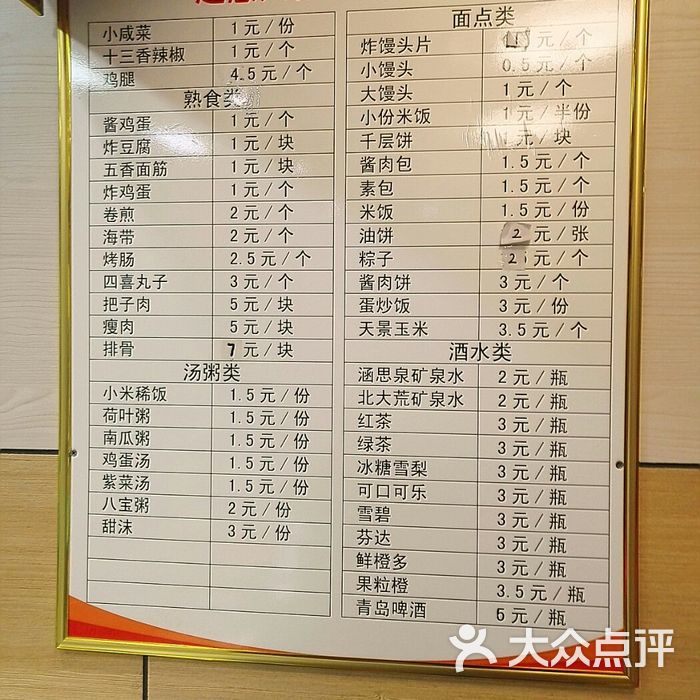 小咸菜 1元/份
十三香辣椒 1元/个
鸡腿 4.5元/个
熟食类
酱鸡蛋 1元/个
炸豆腐 1元/块
五香面筋 1元/块
炸鸡蛋 1元/个
卷煎 2元/个
海带 2元/个
烤肠 2.5元/个
四喜丸子 3元/个
把子肉 5元/块
瘦肉 5元/块
排骨 7元/块
汤粥类
小米稀饭 1.5元/份
荷叶粥 1.5元/份
南瓜粥 1.5元/份
鸡蛋汤 1.5元/份
紫菜汤 1.5元/份
八宝粥 2元/份
甜沫 3元/份
面点类
炸馒头片 元/个
小馒头 0.5元/个
大馒头 1元/个
小份米饭 1元/半份
千层饼 1元/块
酱肉包 1.5元/个
素包 1.5元/个
米饭 1.5元/份
油饼 2元/张
粽子 2元/个
酱肉饼 3元/个
蛋炒饭 3元/份
天景玉米 3.5元/个
酒水类
涵思泉矿泉水 2元/瓶
北大荒矿泉水 2元/瓶
红茶 3元/瓶
绿茶 3元/瓶
冰糖雪梨 3元/瓶
可口可乐 3元/瓶
雪碧 3元/瓶
芬达 3元/瓶
鲜橙多 3元/瓶
果粒橙 3.5元/瓶
青岛啤酒 6元/瓶
大众点评